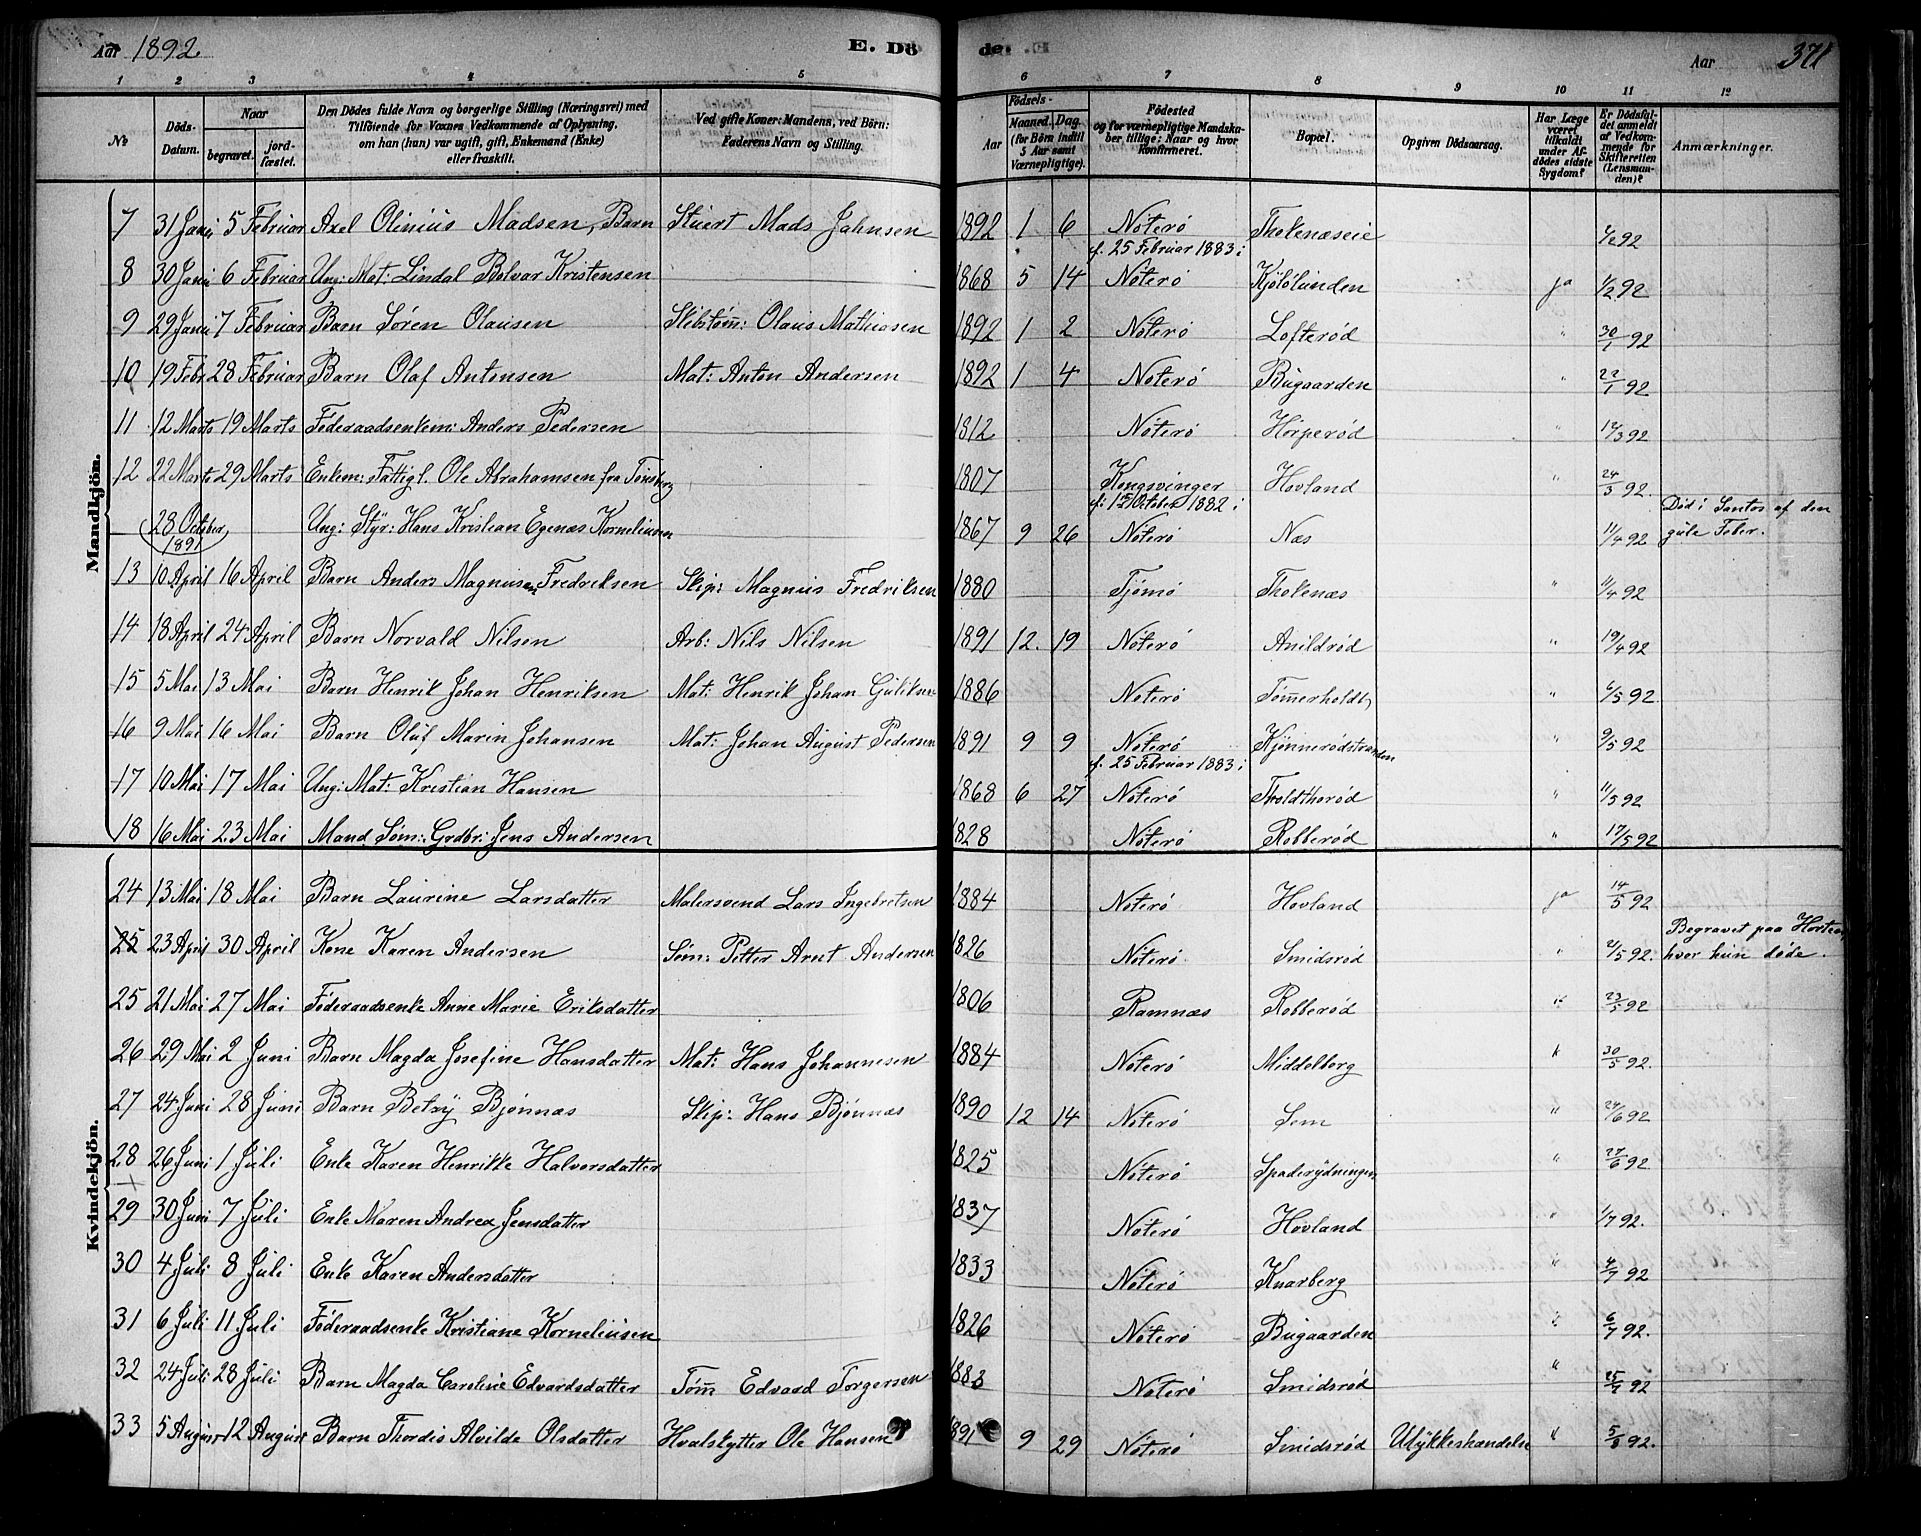 Aar 1892 E. Dö de. E. Aar 371
1 2 3 4 5 6 7 8 9 10 11 12
№ Döds-Datum. Naar begravet. jordfæstet. Den Dödes fulde Navn og borgerlige Stilling (Næringsvei) med Tilföiende for Voxnes Vedkommende af Oplysning, om han (hun) var ugift, gift, Enkemand (Enke) eller fraskilt. Ved gifte Koner: Mandens, ved Börn: Faderens Navn og Stilling. Födsels- Aar Maaned. Dag. (for Börn indtil 5 Aar samt Værnepligtige). Födested og for værnepligtige Mandskaber tillige: Naar og hvor Konfirmeret. Bopæl. Opgiven Dödsaarsag. Har Læge været tilkaldt under Afdödes sidste Sygdom? Er Dödsfaldet anmeldt af Vedkommende for Skifteretten (Lensmanden)? Anmærkninger.
Mandkjön.
7 31 Janu 5 Februar Axel Olinius Madsen, Barn Stuert Mads Jahnsen 1892 1 6 Nøterø Tholenæseie 1/2 92
8 30 Janu 6 Februar Ung: Mat: Lindal Bolvar Kristensen 1868 5 14 cf. 25 Februar 1883 i Nøterø Kjølølunden ja 1/2 92
9 29 Janu 7 Februar Barn Søren Olausen Skibstøm: Olaus Mathiasen 1892 1 2 Nøterø Lofterød " 30/1 92
10 19 Febr 28 Februar Barn Olaf Antonsen Mat: Anton Andersen 1892 1 4 Nøterø Bugaarden " 22/1 92
11 12 Marts 19 Marts Føderaadsenkem: Anders Pedersen 1812 Nøterø Horperød " 12/3 92
12 22 Marts 29 Marts Enkem: Fattigl. Ole Abrahamsen fra Tønsberg 1807 Kongsvinger Hovland " 24/3 92.
28 October 1891 Ung: Styr: Hans Kristian Egenæs Korneliussen 1867 9 26 cf: 15 October 1882 i Nøterø Næs 11/4 92 Død i Santos af den gule Feber.
13 10 April 16 April Barn Anders Magnussen Fredriksen Skip: Magnus Fredriksen 1880 Tjømø Tholenæs " 11/4 92
14 18 April 24 April Barn Norvald Nilsen Arb: Nils Nilsen 1891 12. 19 Nøterø Arnildrød " 19/4 92
15 5 Mai 13 Mai Barn Henrik Johan Henriksen Mat: Henrik Johan Guliksen 1886 Nøterø Tømmerholdt " 6/5 92
16 9 Mai 16 Mai Barn Oluf Marin Johansen Mat: Johan August Pedersen 1891 9 9 Nøterø Kjønnerødstranden " 9/5 92
17 10 Mai 17 Mai Ung: Mat: Kristian Hansen 1868 6 27 cf. 25 Februar 1883 i Nøterø Tholdthorød " 11/5 92
18 16 Mai 23 Mai Mand Søm: Grdbr: Jens Andersen 1828 Nøterø Robberød " 17/5 92
Kvindekjön.
24 13 Mai 18 Mai Barn Laurine Larsdatter Malersvend Lars Ingebretsen 1884 Nøterø Hovland ja 14/5 92
25 23 April 30 April Kone Karen Andersen Søm: Petter Arnt Andersen 1826 Nøterø Smidsrød " 2/5 92. Begravet paa Horten, hvor hun døde.
25 21 Mai 27 Mai Føderaadsenke Anne Marie Eriksdatter 1806 Ramnæs Robberød " 23/5 92
26 29 Mai 2 Juni Barn Magda Josefine Hansdatter Mat: Hans Johannesen 1884 Nøterø Middelborg " 30/5 92.
27 24 Juni 28 Juni Barn Betsy Bjønnæs Skip: Hans Bjønnæs 1890 12 14 Nøterø Sem " 24/6 92
28 26 Juni 1 Juli Enke Karen Henrikke Halvorsdatter 1825 Nøterø Spaderydningen " 27/6 92
29 30 Juni 7 Juli Enke Maren Andrea Jensdatter 1837 Nøterø Hovland " 1/7 92.
30 4 Juli 8 Juli Enke Karen Andersdatter 1833 Nøterø Knarberg " 4/7 92
31 6 Juli 11 Juli Føderaadsenke Kristiane Korneliusen 1826 Nøterø Bugaarden " 6/7 92.
32 24 Juli 28 Juli Barn Magda Caroline Edvardsdatter Tøm Edvard Torgersen 1883 Nøterø Smidsrød " 25/7 92
33 5 August 12 August Barn Thordis Alvilde Olsdatter Hvalskytter Ole Hansen 1891 9 29 Nøterø Smidsrød Ulykkeshændelse " 5/8 92.